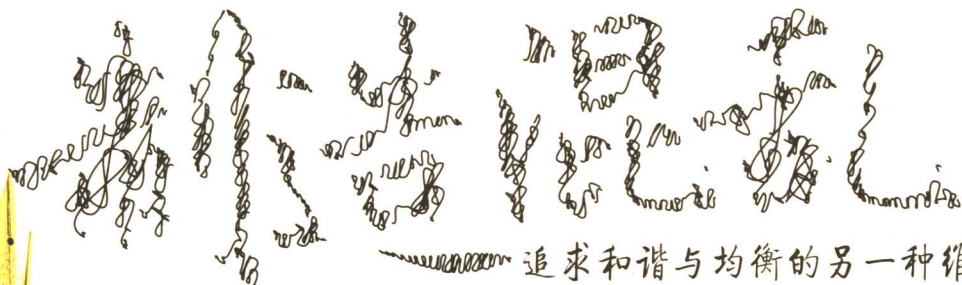 制造混乱
——追求和谐与均衡的另一种维